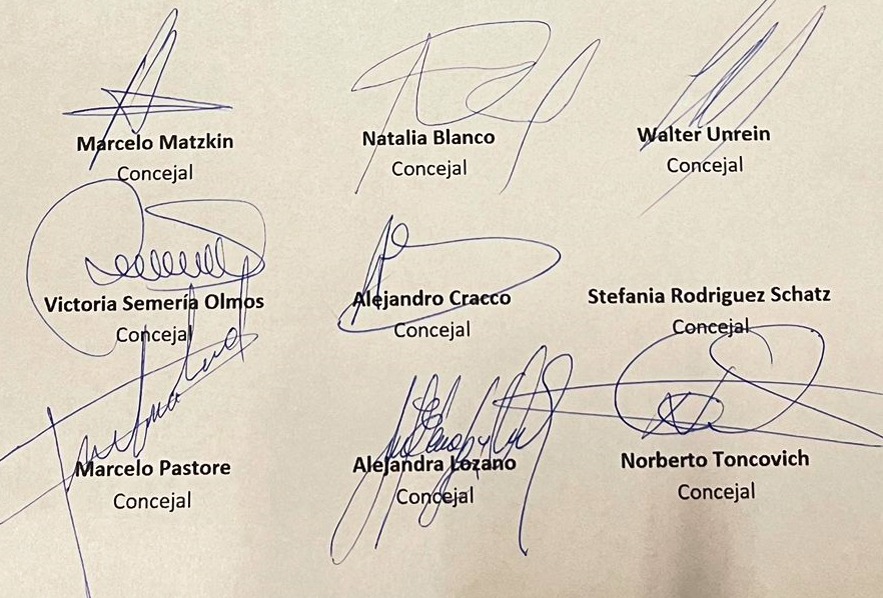 Marcelo Matzkin
Concejal
Natalia Blanco
Concejal
Walter Unrein
Concejal
Victoria Semería Olmos
Concejal
Alejandro Cracco
Concejal
Stefania Rodriguez Schatz
Concejal
Marcelo Pastore
Concejal
Alejandra Lozano
Concejal
Norberto Toncovich
Concejal